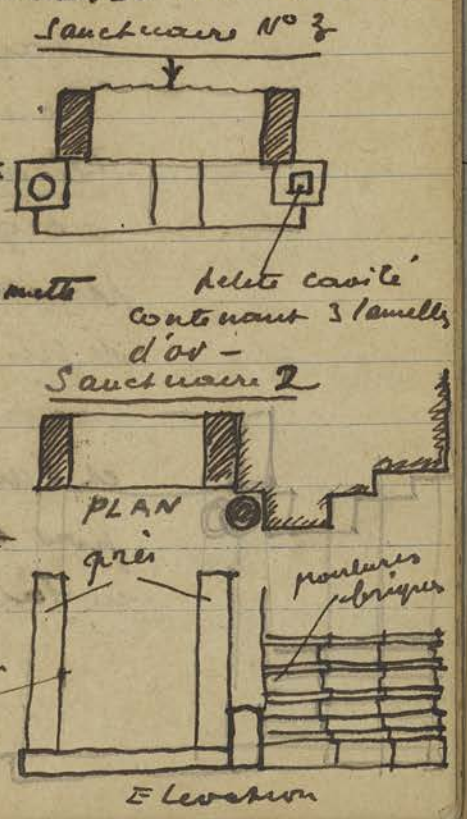 Sanctuaire N° 3
petite cavité
contenant 3 lamelles
d'or -
Sanctuaire 2
PLAN
grès
moulures
briques
Elevation